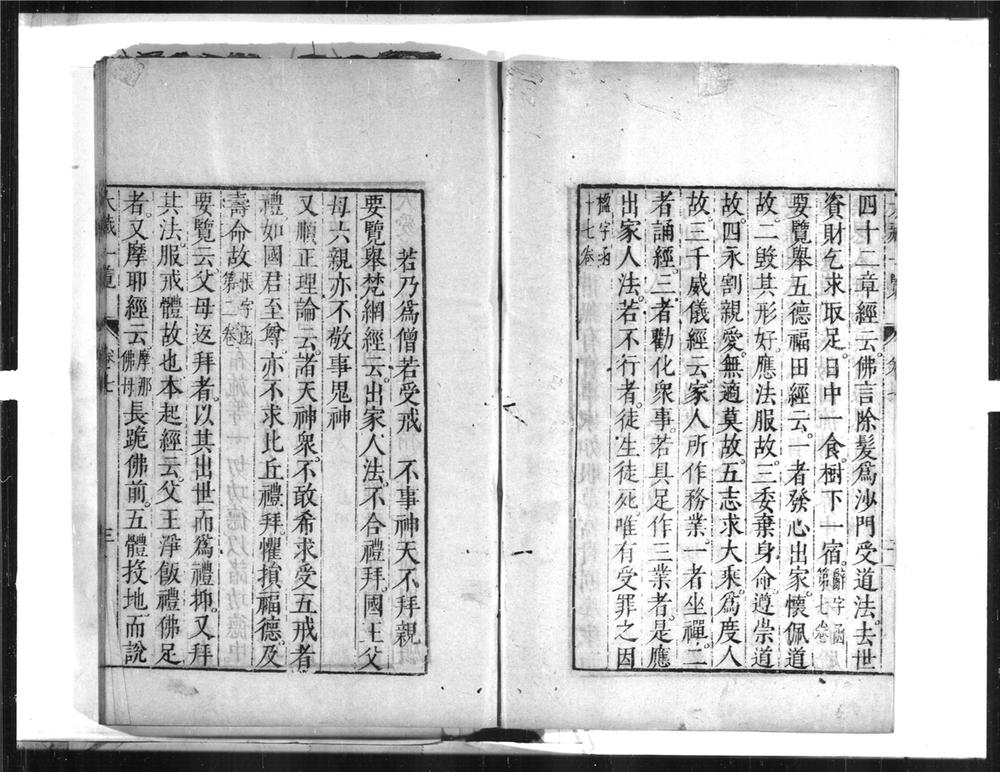 四十二章經云佛言除髮爲沙門受道法去世
資財乞求取足日中一食樹下一宿辭字函第七卷
要覽舉五德福田經云一者發心出家懷佩道
故二毀其形好應法服故三委棄身命遵崇道
故四永割親愛無適莫故五志求大乘爲度人
故三千威儀經云家人所作務業一者坐禪二
者誦經三者勸化衆事若具足作三業者是應
出家人法若不行者徒生徒死唯有受罪之因
字函十七卷
若乃爲僧若受戒 不事神天不拜親
要覽舉梵網經云出家人法不合禮拜國王父
母六親亦不敬事鬼神
又順正理論云諸天神衆不敢希求受五戒者
禮如國君至尊亦不求比丘禮拜懼損福德及
壽命故帳字函第二卷
要覽云父母返拜者以其出世而爲禮抑又拜
其法服戒體故也本起經云父王淨飯禮佛足
者又摩耶經云摩耶佛母長跪佛前五體投地而說
大藏一覽 卷七 三